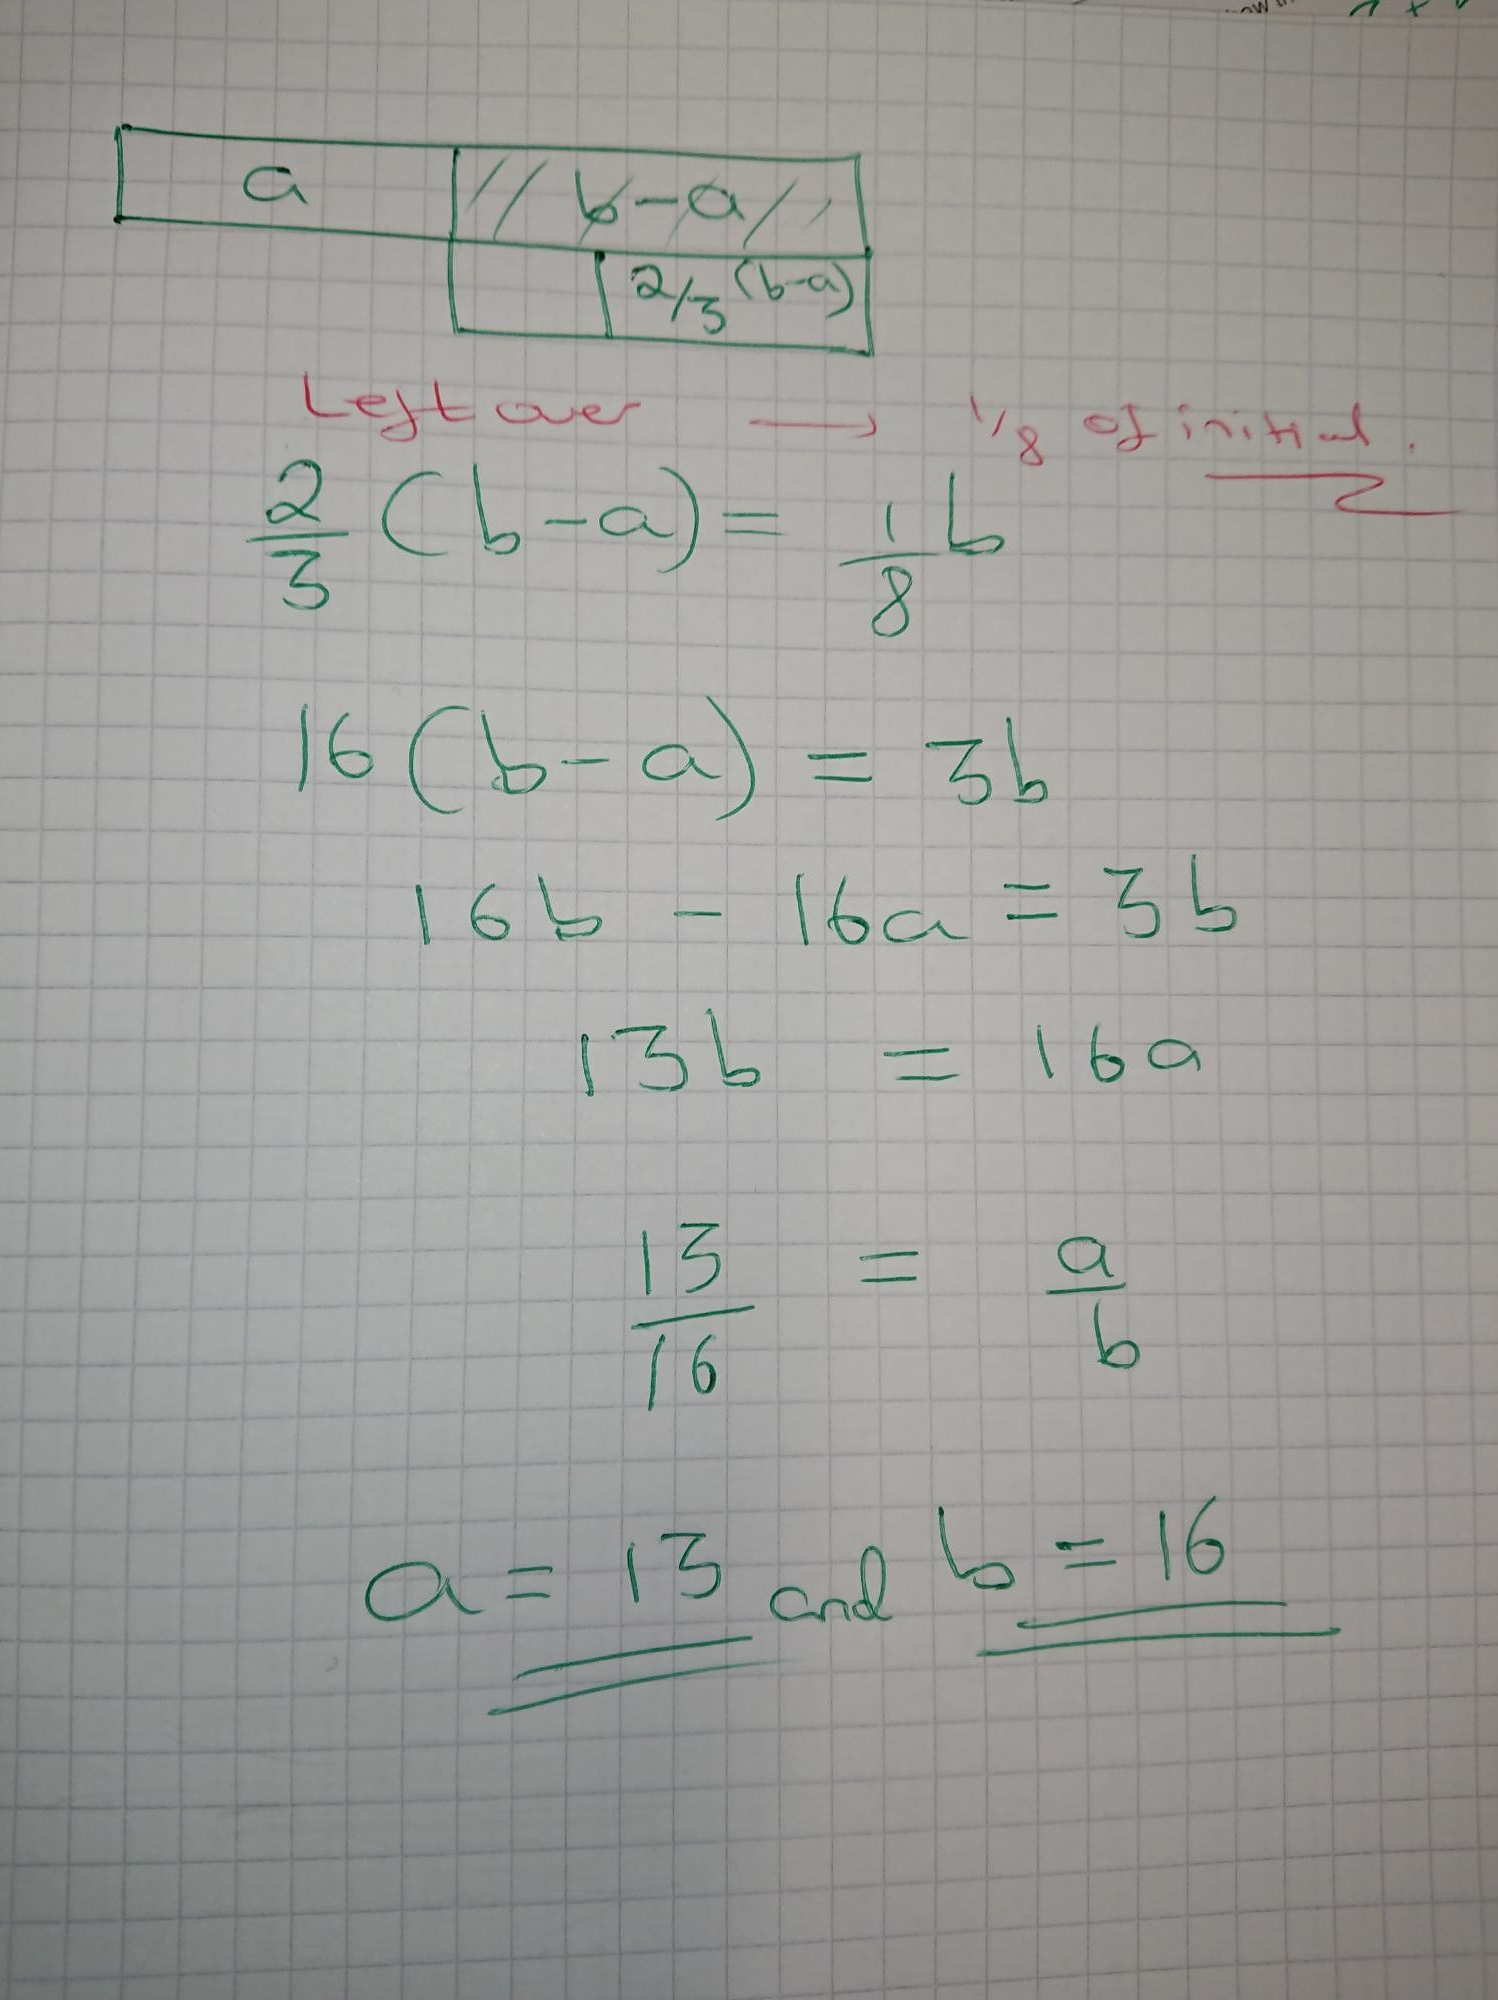 a
b-a
2/3 (b-a)
Left over → 1/8 of initial.
2/3 (b-a) = 1/8 b
16 (b-a) = 3b
16b - 16a = 3b
13b = 16a
13/16 = a/b
a = 13 and b = 16